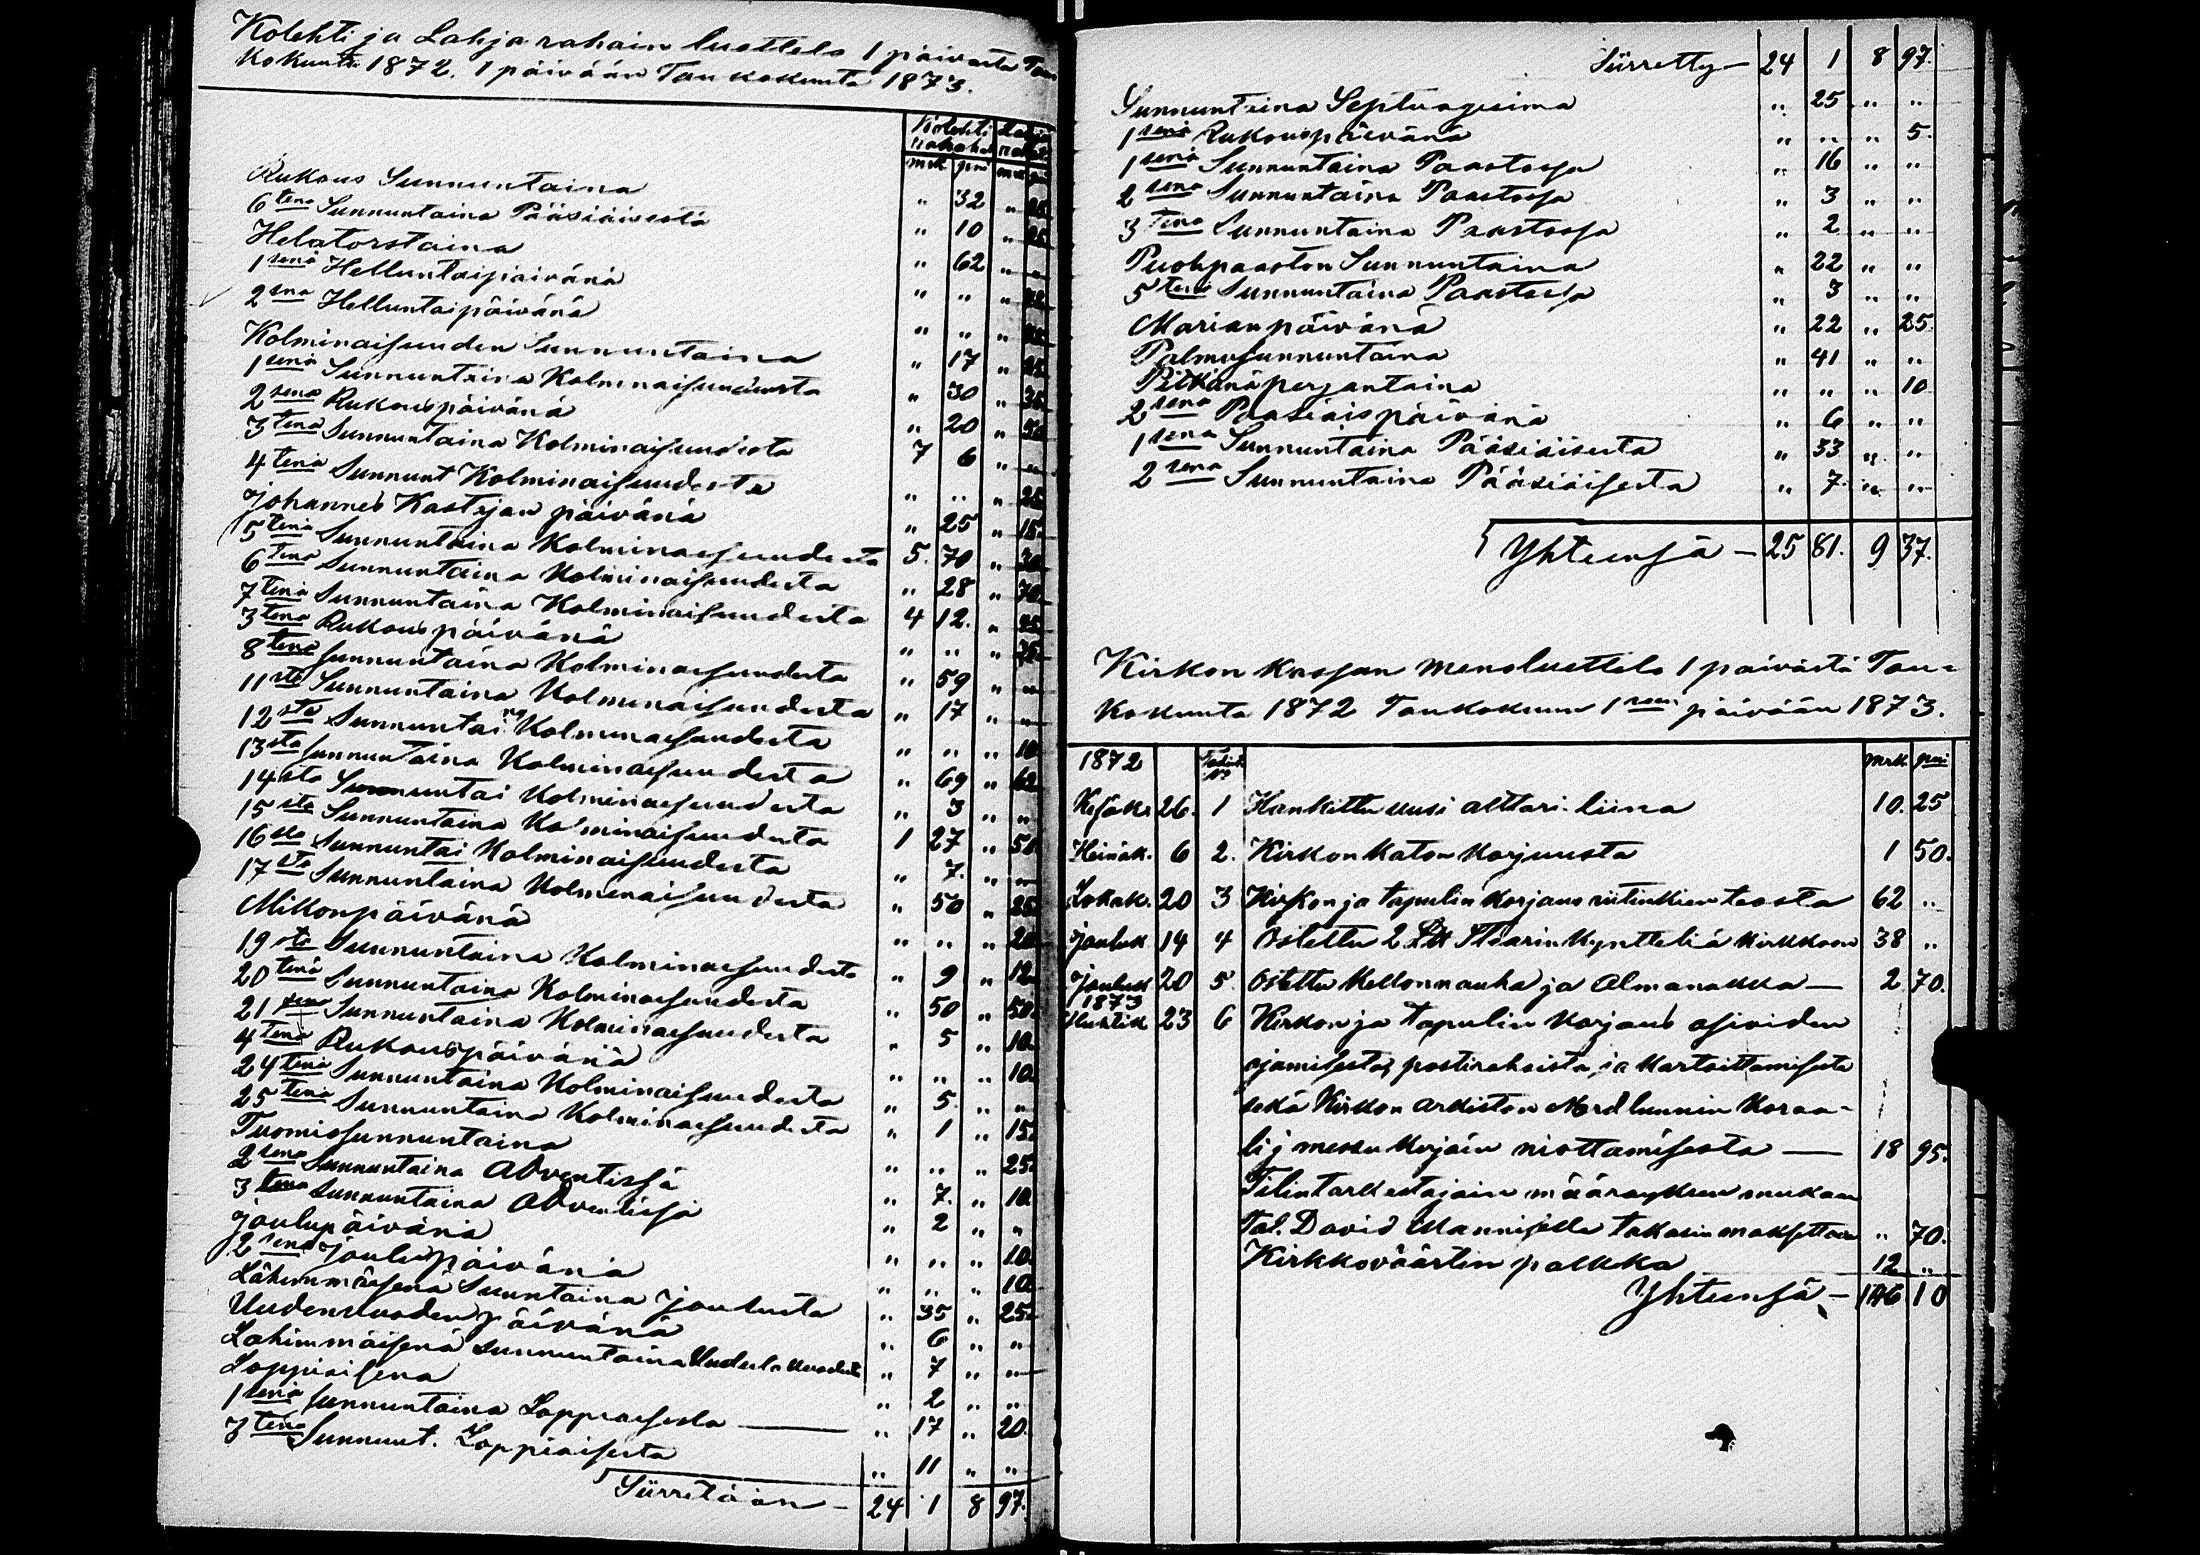 Kolehti ja Lahja rahain luettelo 1 päivästä Tou
kokuuta 1872. 1 päivään Toukokuuta 1873.
Kolehti
mrk pni
Rukous Sunnuntaina " 32 "
6 tena Sunnuntaina Pääsiäisestä " 10 "
Helatorstaina " 62 " "
1 senä Helluntaipäivänä " " "
2 sna Helluntaipäivänä " " "
Kolminaisuuden Sunnuntaina " 17 "
1 senä Sunnuntaina Kolminaisuudesta " 30 "
2 sena Rukouspäivänä " 20 "
3 tena Sunnuntaina Kolminaisuudesta 7 6 " "
4 tenä Sunnunt Kolminaisuudesta " " " 25
Johannes Kastejan päivänä " 25 " 15
5 tenä Sunnuntaina Kolminaisuudesta 5. 70 " 30
6 tena Sunnuntaina Kolminaisuudesta " 28 " 70
7 tenä Sunnuntaina Kolminaisuudesta 4 12. "
3 tena Rukouspäivänä " " "
8 tena sunnuntaina Kolminaisuudesta " 59 " "
11 sta Sunnuntaina Kolminaisuudesta " 17 " "
12 sta Sunnuntaina Kolminaisuudesta " " " 10
13 sta sunnuntaina Kolminaisuudesta " 69 " 62
14 sta Sunnuntai Kolminaisuudesta " 3 " "
15 sta Sunnuntaina Kolminaisuudesta 1 27 " 50
16 sta Sunnuntai Kolminaisuudesta " 7. " "
17 sta Sunnuntaina Kolminaisuudesta " 50 " 25
Mikonpäivänä " " " 20
19 sta Sunnuntaina Kolminaisuudesta " 9 " 12
20 tenä Sunnuntaina Kolminaisuudesta " 50 " 50
21 sena Sunnuntaina Kolminaisuudesta " 5 " 10.
4 tenä Rukouspäivänä " " " 10.
24 tenä Sunnuntaina Kolminaisuudesta " 5. " "
25 tena Sunnuntaina Kolminaisuudesta " 1 " 15.
Tuomiosunnuntaina " " " 25.
2 sena Sunnuntaina Adventissä " 7. " 10.
3 tena Sunnuntaina Adventissä " 2 " "
Joulupäivänä " " " 10.
2 senä Joulupäivänä " " " 10.
Lähimmäisenä Sunntaina Joulusta " 35 " 25.
Uudenvuoden päivänä " 6 " "
Lähimmäisenä Sunnuntaina Uudesta vuodesta " 7 " "
Loppiaisena " 2 " "
1 senä sunnuntaina Loppiaisesta — " 17 " 20.
3 tena Sunnunt. Loppiaisesta " 11 " "
Siirretään — 24 1 8 97.
Siirretty — 24 1 8 97.
Sunnuntaina Septuagesima " 25 " "
1 senä Rukouspäivänä " " " 5.
1 senä Sunnuntaina Paastossa " 16 " "
2 sena Sunnuntaina Paastossa " 3 " "
3 tena Sunnuntaina Paastossa " 2 " "
Puolipaaston Sunnuntaina " 22 " "
5 tena Sunnuntaina Paastossa " 3 " "
Marian päivänä " 22 " 25.
Palmusunnuntaina " 41 " "
Pitkänäperjantaina " " " 10
2 senä Pääsiäispäivänä " 6 " "
1 senä Sunnuntaina Pääsiäisestä " 33 " "
2 sena Sunnuntaina Pääsiäisestä " 7. " "
Yhteensä — 25 81. 9 37.
Kirkon Kassan menoluettelo 1 päivästä Tou=
kokuuta 1872 Toukokuun 1 seen päivään 1873.
1872 No mrk. pni
Kesäk. 26. 1 Hankittu uusi alttari liina 10. 25
Heinäk. 6 2. Kirkon katon korjuusta 1 50.
Lokak. 20 3 Kirkon ja tapulin korjaus riitinkien teosta 62 "
Jouluk 14 4 Ostettu 2 Steariin kyntteliä kirkkoon 38 "
Jouluk 20 5. Ostettu kellonnauha ja Almanakka — 2 70.
1873
Huhtik 23 6 Kirkon ja tapulin korjaus asioiden
ajamisesta, postirahoista ja kartoittamisesta
sekä Kirkon arkiston Nordlunnin koraa-
li j messu kirjain niottamisesta — 18 95.
Tilintarkastajain määräyksen mukaan
Tal. David Mannisella takasin maksettava " 70.
Kirkkoväärtin palkka 12 "
Yhteensä — 146 10